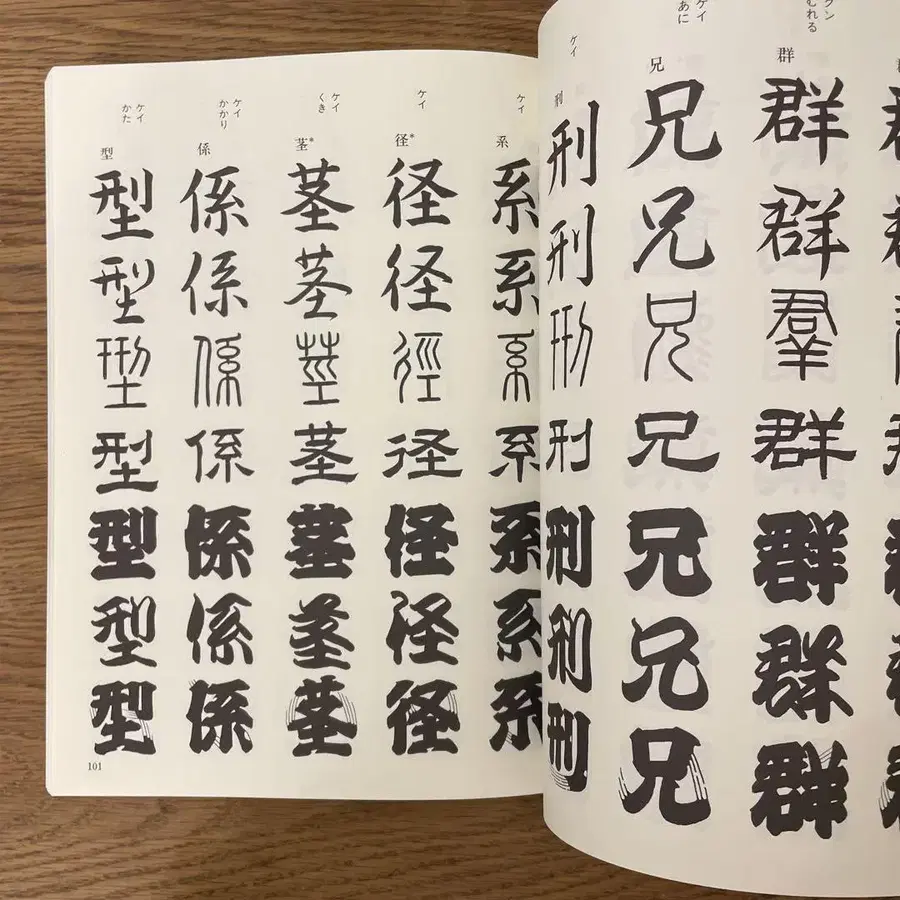 むれる
群
群群羣群群群群
ケイ
あに
兄
兄兄兄兄兄兄兄
ケイ
刑
刑刑刑刑刑刑刑
ケイ
系
系系系系系系系
ケイ
径*
径径徑径径径径
ケイ
くき
茎*
茎茎莖茎茎茎茎
ケイ
かかり
係
係係係係係係係
ケイ
かた
型
型型型型型型型
101